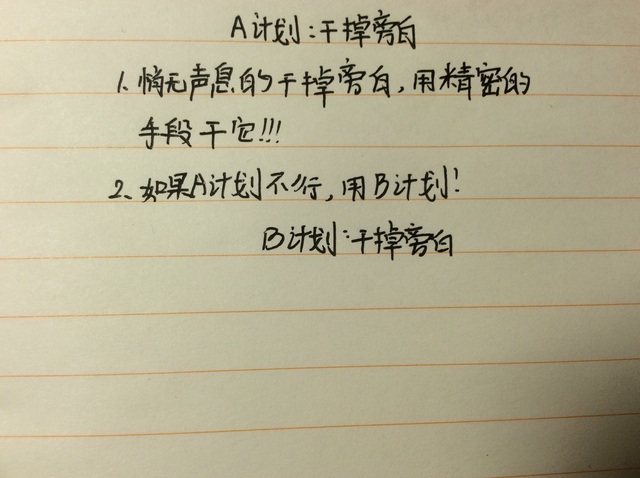 A计划:干掉旁白
1.悄无声息的干掉旁白,用精密的
手段干它!!!
2.如果A计划不行,用B计划!
B计划:干掉旁白